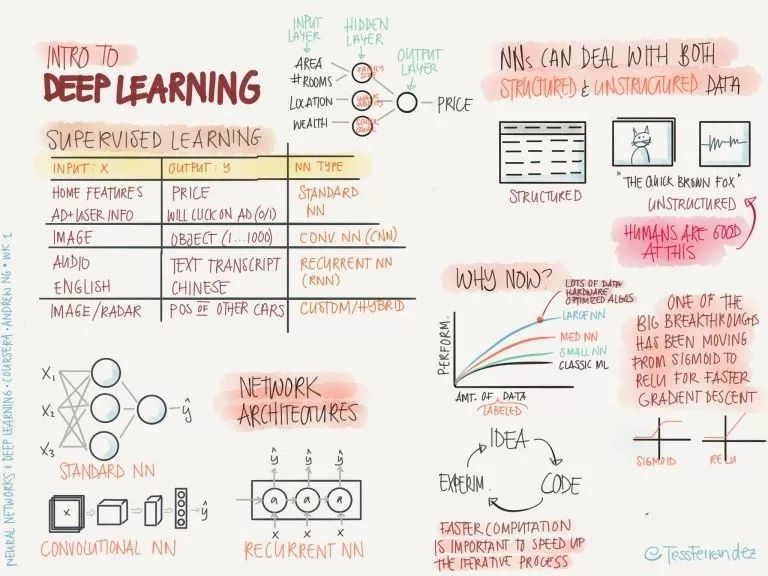 INTRO TO
DEEP LEARNING
INPUT LAYER
HIDDEN LAYER
OUTPUT LAYER
AREA
# ROOMS
LOCATION
WEALTH
FAMILY SIZE
PRICE
SUPERVISED LEARNING
INPUT: X OUTPUT: Y NN TYPE
HOME FEATURES PRICE STANDARD
AD+USER INFO WILL CLICK ON AD (0/1) NN
IMAGE OBJECT (1...1000) CONV. NN (CNN)
AUDIO TEXT TRANSCRIPT RECURRENT NN
ENGLISH CHINESE (RNN)
IMAGE/RADAR POS OF OTHER CARS CUSTOM/HYBRID
NNs CAN DEAL WITH BOTH
STRUCTURED & UNSTRUCTURED DATA
STRUCTURED
"THE QUICK BROWN FOX"
UNSTRUCTURED
HUMANS ARE GOOD
AT THIS
X₁
X₂
X₃
ŷ
STANDARD NN
X
ŷ
CONVOLUTIONAL NN
NETWORK
ARCHITECTURES
ŷ ŷ ŷ
a a a
X X X
RECURRENT NN
WHY NOW?
PERFORM.
LOTS OF DATA
HARDWARE
OPTIMIZED ALGOS
LARGE NN
MED NN
SMALL NN
CLASSIC ML
AMT. OF DATA
LABELED
IDEA
CODE
EXPERIM.
FASTER COMPUTATION
IS IMPORTANT TO SPEED UP
THE ITERATIVE PROCESS
ONE OF THE
BIG BREAKTHROUGHS
HAS BEEN MOVING
FROM SIGMOID TO
RELU FOR FASTER
GRADIENT DESCENT
SIGMOID
RELU
@TessFerrandez
NEURAL NETWORKS & DEEP LEARNING • COURSERA • ANDREW NG • WK 1